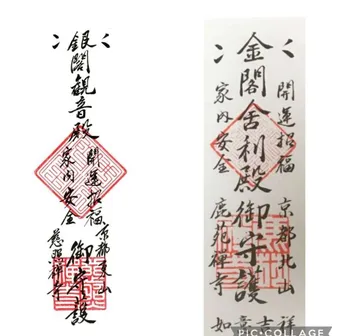 銀閣觀音殿 御守護
開運招福
京都東山
家内安全
慈照禅寺
金閣舍利殿御守護
開運招福
京都北山
祥
家内安全
鹿苑禅寺
如
吉
意
PIC•COLLAGE